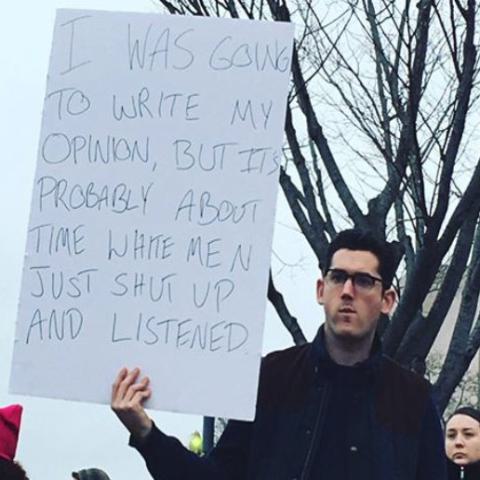 I WAS GOING
TO WRITE MY
OPINION, BUT ITS
PROBABLY ABOUT
TIME WHITE MEN
JUST SHUT UP
AND LISTENED.